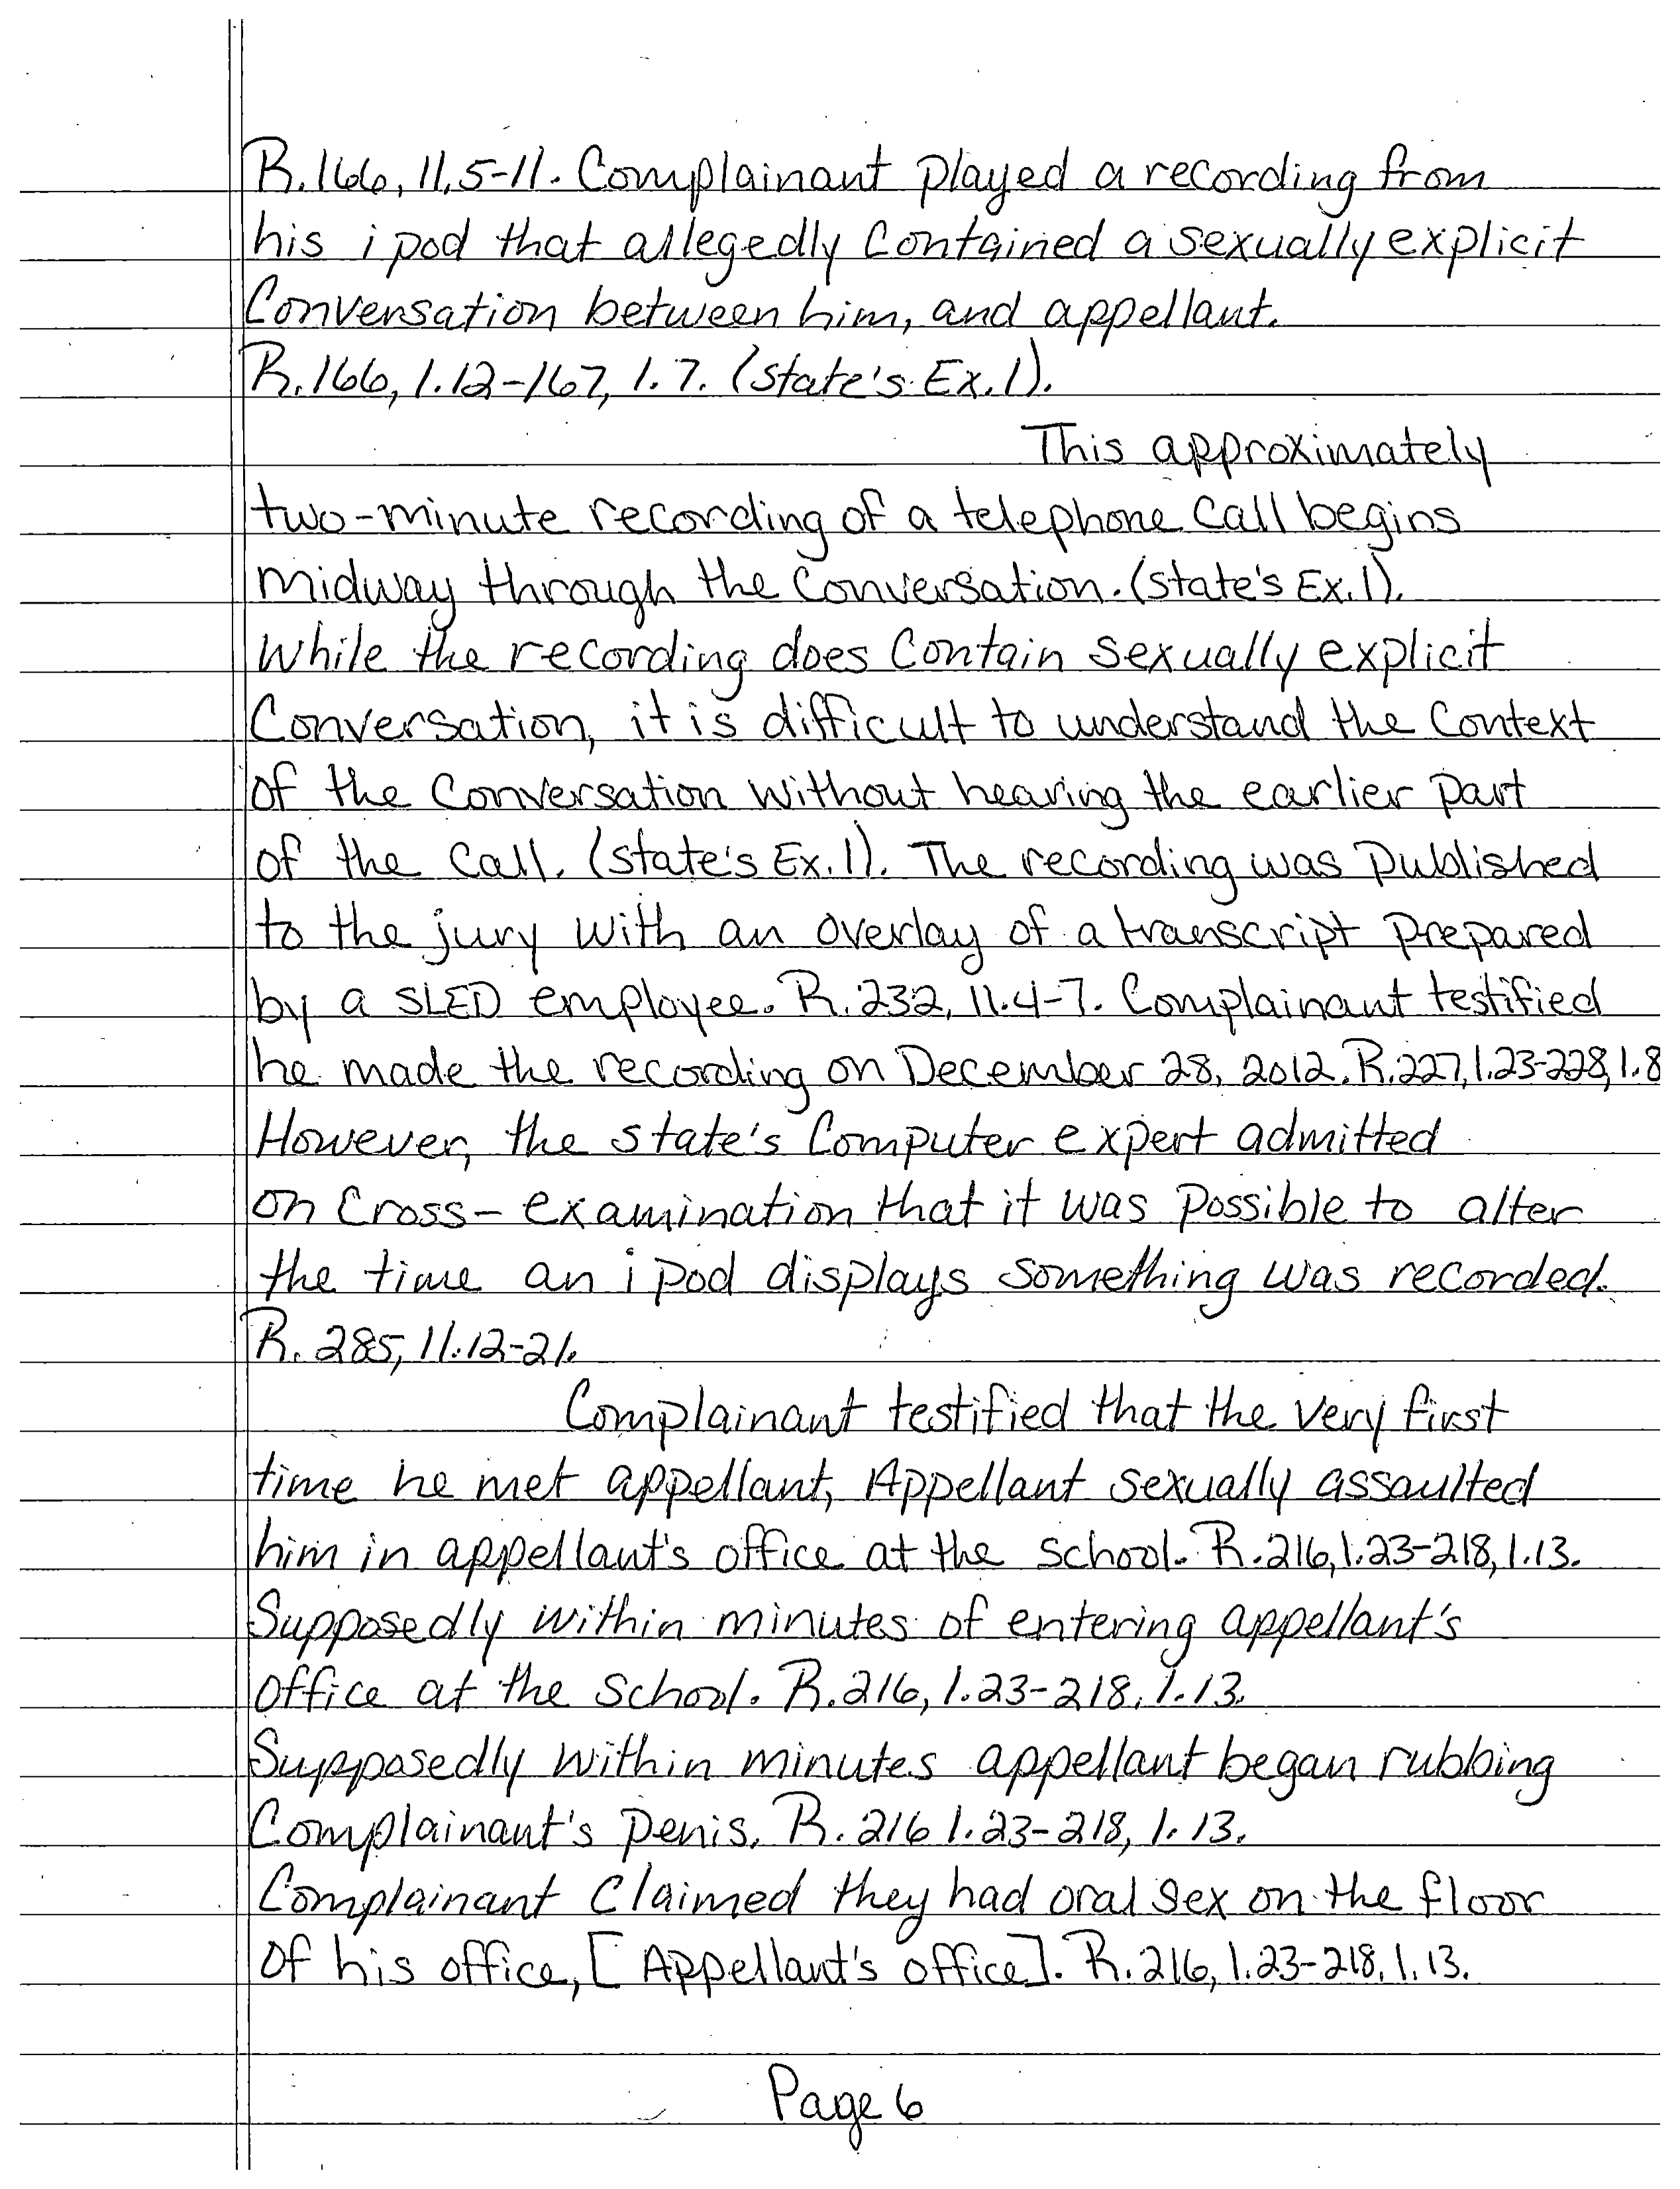 R.166, ll.5-11. Complainant played a recording from
his ipod that allegedly contained a sexually explicit
Conversation between him, and appellant.
R.166, l.12-167, l.7. (State's Ex.1).
This approximately
two-minute recording of a telephone call begins
midway through the conversation. (State's Ex.1).
While the recording does contain sexually explicit
Conversation, it is difficult to understand the context
of the conversation without hearing the earlier part
of the call. (State's Ex.1). The recording was published
to the jury with an overlay of a transcript prepared
by a SLED employee. R.232, ll.4-7. Complainant testified
he made the recording on December 28, 2012. R.227, l.23-228, l.8
However, the state's computer expert admitted
on cross-examination that it was possible to alter
the time an ipod displays something was recorded.
R. 285, ll.12-21.
Complainant testified that the very first
time he met appellant, Appellant sexually assaulted
him in appellant's office at the school. R.216, l.23-218, l.13.
Supposedly within minutes of entering appellant's
office at the school. R.216, l.23-218, l.13.
Supposedly within minutes appellant began rubbing
Complainant's penis. R.216 l.23-218, l.13.
Complainant claimed they had oral sex on the floor
of his office, [Appellant's office]. R.216, l.23-218, l.13.
Page 6